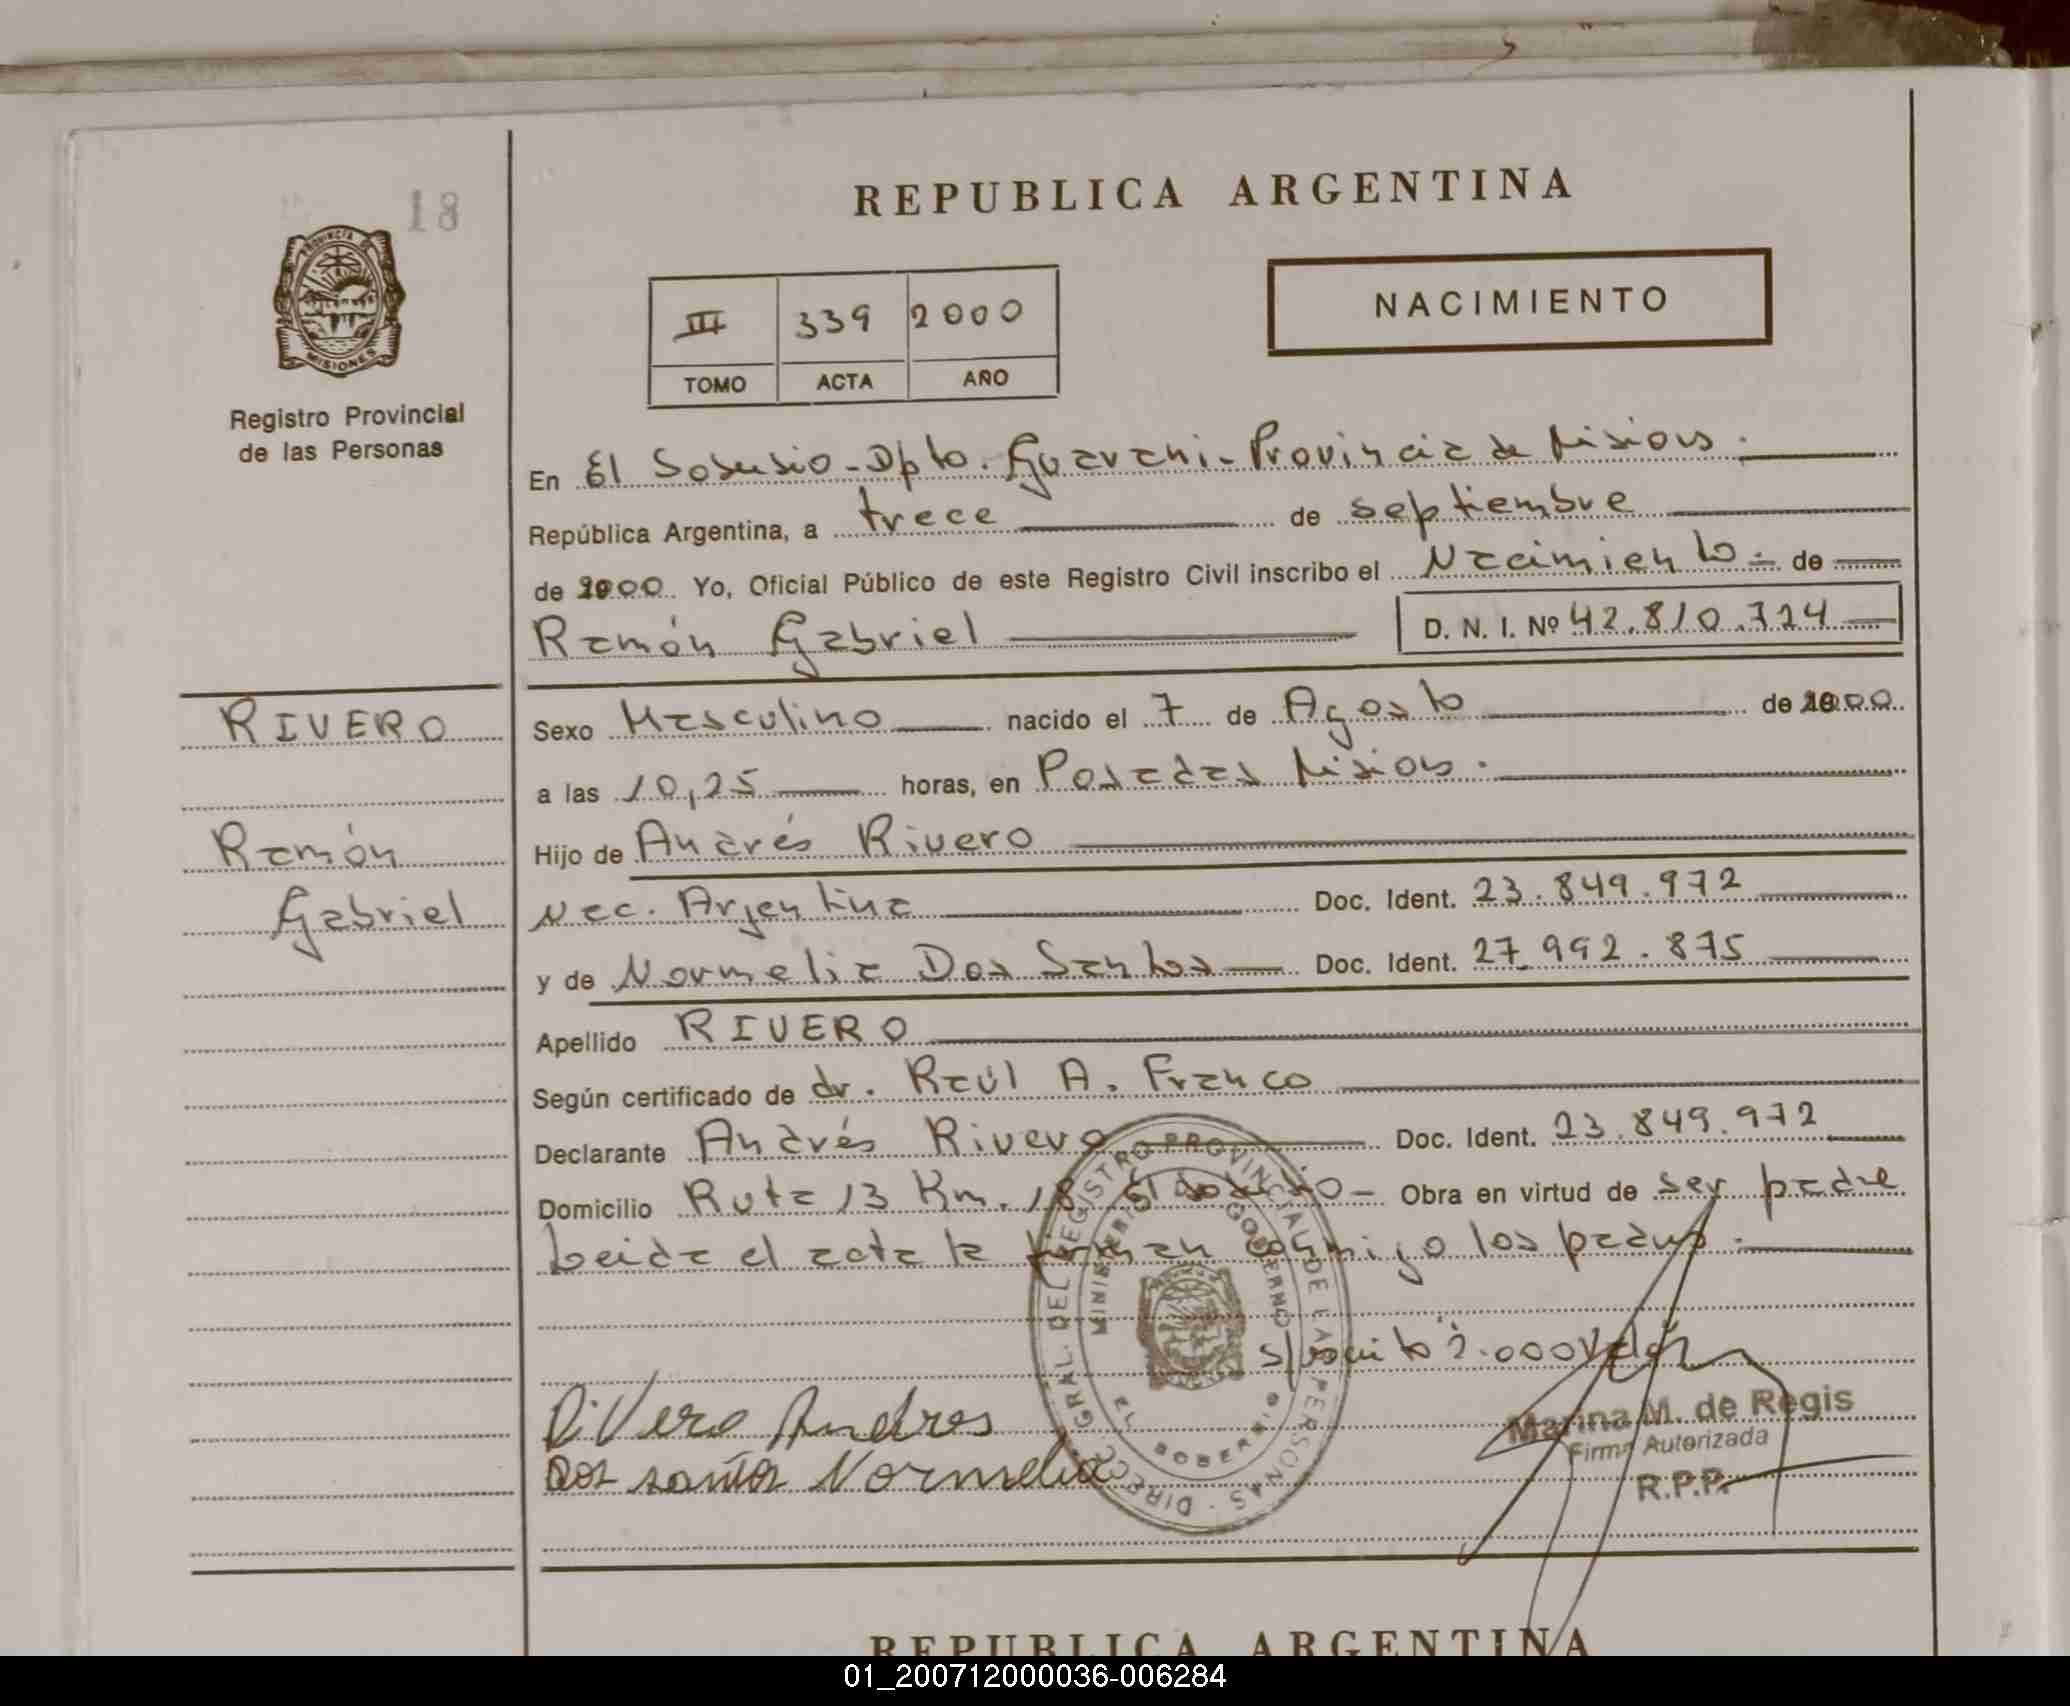 18
PROVINCIA DE
MISIONES
Registro Provincial
de las Personas
REPUBLICA ARGENTINA
III 339 2000
TOMO ACTA AÑO
NACIMIENTO
En El Soberbio - Dpto. Guarani - Provincia de Misiones.
República Argentina, a trece de septiembre
de 2000 Yo, Oficial Público de este Registro Civil inscribo el Nacimiento - de
Ramón Gabriel D. N. I. Nº 42.810.724
RIVERO
Ramón
Gabriel
Sexo Masculino nacido el 7 de Agosto de 2000
a las 10,25 horas, en Posadas Misiones.
Hijo de Andrés Rivero
Nac. Argentina Doc. Ident. 23.849.972
y de Normelia Dos Santos Doc. Ident. 27.992.875
Apellido RIVERO
Según certificado de dr. Raúl A. Franco
Declarante Andrés Rivero Doc. Ident. 23.849.972
Domicilio Ruta 13 Km. 18 El Soberbio - Obra en virtud de ser padre
Leida el acta la firman conmigo los padres.
S/ "2.000 Vale
DIRECC. GRAL. DEL REGISTRO PROVINCIAL DE LAS PERSONAS
MINISTERIO GOBIERNO
EL SOBERBIO
Rivero Andres
Dos santos Normelia
Marina M. de Regis
Firma Autorizada
R.P.P.
REPUBLICA ARGENTINA
01_200712000036-006284